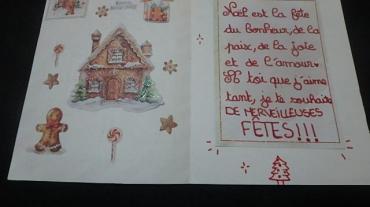 Noël est la fête
du bonheur, de la
paix, de la joie
et de l'amour.
A toi que j'aime
tant, je te souhaite
DE MERVEILLEUSES
FÊTES!!!